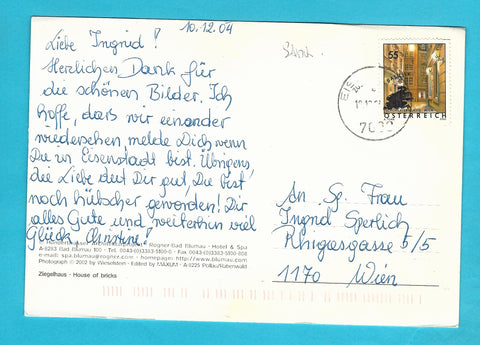 10.12.04
Liebe Ingrid!
Herzlichen Dank für
die schönen Bilder. Ich
hoffe, dass wir einander
wiedersehen, melde Dich wenn
Du in Eisenstadt bist. Übrigens,
die Liebe tut Dir gut, Du bist
noch hübscher geworden! Dir
alles Gute und weiterhin viel
Glück Christine!
Rogner-Bad Blumau - Hotel & Spa
A-8283 Bad Blumau 100 - Tel. 0043-(0)3383-5100-0 - Fax 0043-(0)3383-5100-808
e-mail: spa.blumau@rogner.com - homepage: http://www.blumau.com
Photograph © 2002 by Wieselstein - Edited by MAXUM - A-8225 Pöllau/Rabenwald
Ziegelhaus - House of bricks
55
ÖSTERREICH
EIS
10.12
7000
An Sp. Frau
Ingrid Sperlich
Rhigasgasse 5/5
1170 Wien